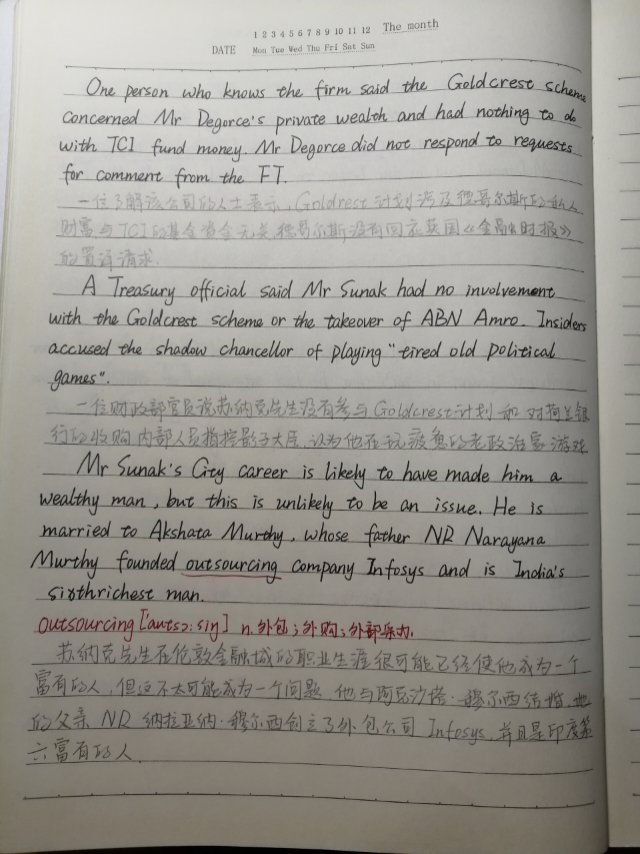 1 2 3 4 5 6 7 8 9 10 11 12 The month
DATE Mon Tue Wed Thu Fri Sat Sun
One person who knows the firm said the Goldcrest scheme
concerned Mr Degorce's private wealth and had nothing to do
with TCI fund money. Mr Degorce did not respond to requests
for comment from the FT.
一位了解该公司的人士表示,Goldrest计划涉及德哥尔斯的私人
财富与TCI的基金资金无关,德哥尔斯没有回应英国《金融时报》
的置评请求.
A Treasury official said Mr Sunak had no involvement
with the Goldcrest scheme or the takeover of ABN Amro. Insiders
accused the shadow chancellor of playing "tired old political
games".
一位财政部官员说苏纳克先生没有参与Goldcrest计划和对荷兰银
行的收购,内部人员指控影子大臣,认为他在玩疲惫的老政治家游戏
Mr Sunak's City career is likely to have made him a
wealthy man, but this is unlikely to be an issue. He is
married to Akshata Murthy, whose father NR Narayana
Murthy founded outsourcing company Infosys and is India's
sixthrichest man.
outsourcing ['aʊtsɔːsɪŋ] n.外包;外购;外部采办.
苏纳克先生在伦敦金融城的职业生涯很可能已经使他成为一个
富有的人,但这不太可能成为一个问题.他与阿克沙塔·穆尔西结婚,她
的父亲NR纳拉亚纳·穆尔西创立了外包公司Infosys,并且是印度第
六富有的人.